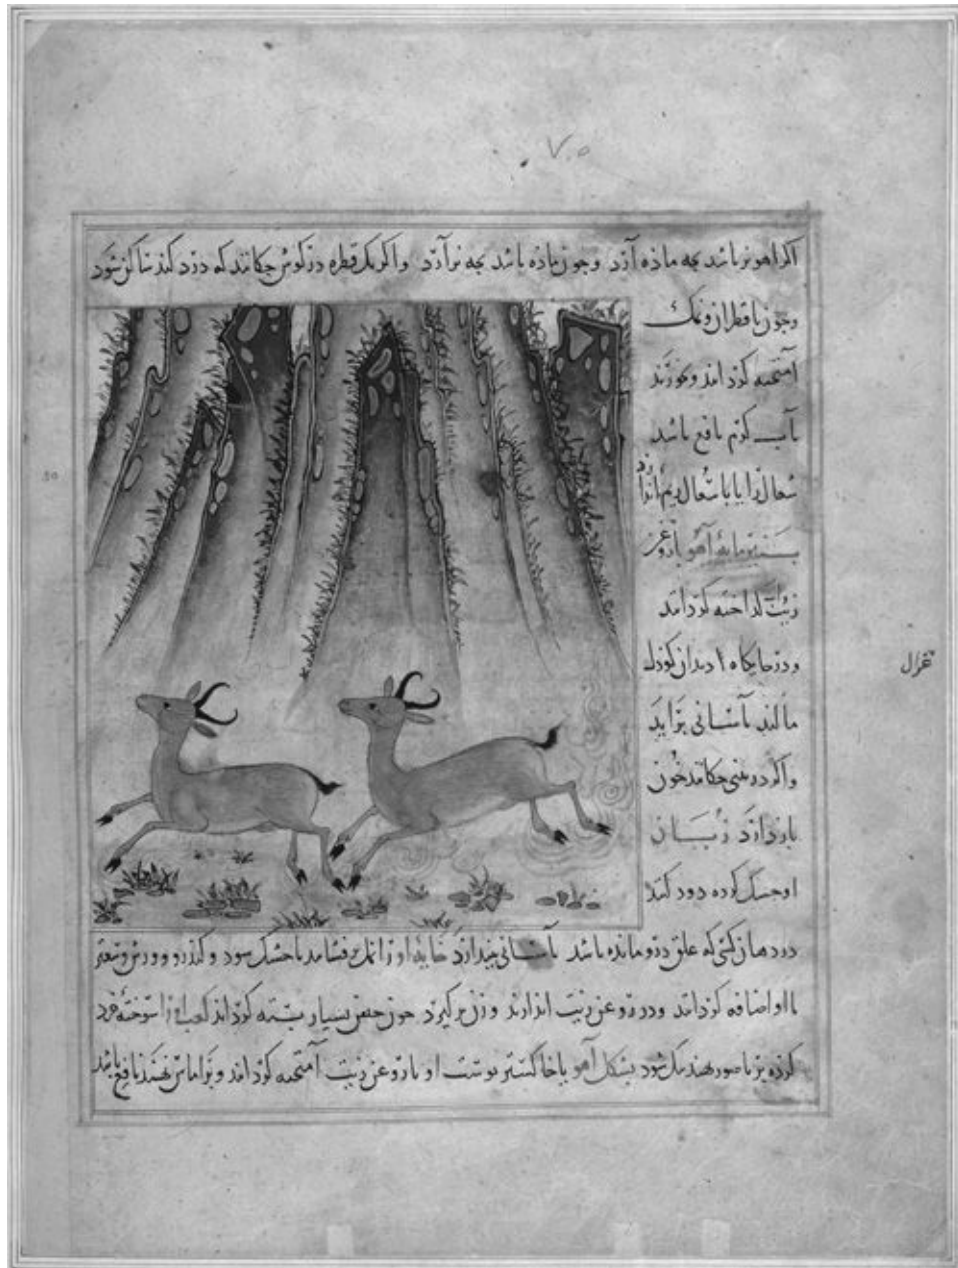 ۷۰۵
اکر اهو نر باشد بجه ماده آرد وجون ماده باشد بجه نر آرد واکر یک قطره در کوش جکانند که درد کند ساکن شود
وجون با قطران ونمک
آمیخته کردانند وخورند
بآب کرم نافع باشد
سعال را یا با سعال دیم اندازد
بنیرمایهٔ آهو با روغن
زیت کداخته کردانند
ودر جایکاه دندان کودک
مالند بآسانی برآید
واکر در بینی جکانند خون
باز دارد زبان
او خشک کرده دود کنند
در دهان کسی که علق درو مانده باشد بآسانی بیندازد خایهٔ او را نمک برفشانند تا خشک شود وکندر و
با او اضافه کردانند ودر روغن زیت اندازند وزن برکیرد خون حیض بسیار بسته کرداند کعب او را سوخته خرد
کرده بر ناصور نهند نیک شود بشکل آهو با خاکستر بوست او با روغن زیت آمیخته کردانند وبر اماس نهند نافع باشد
غزال